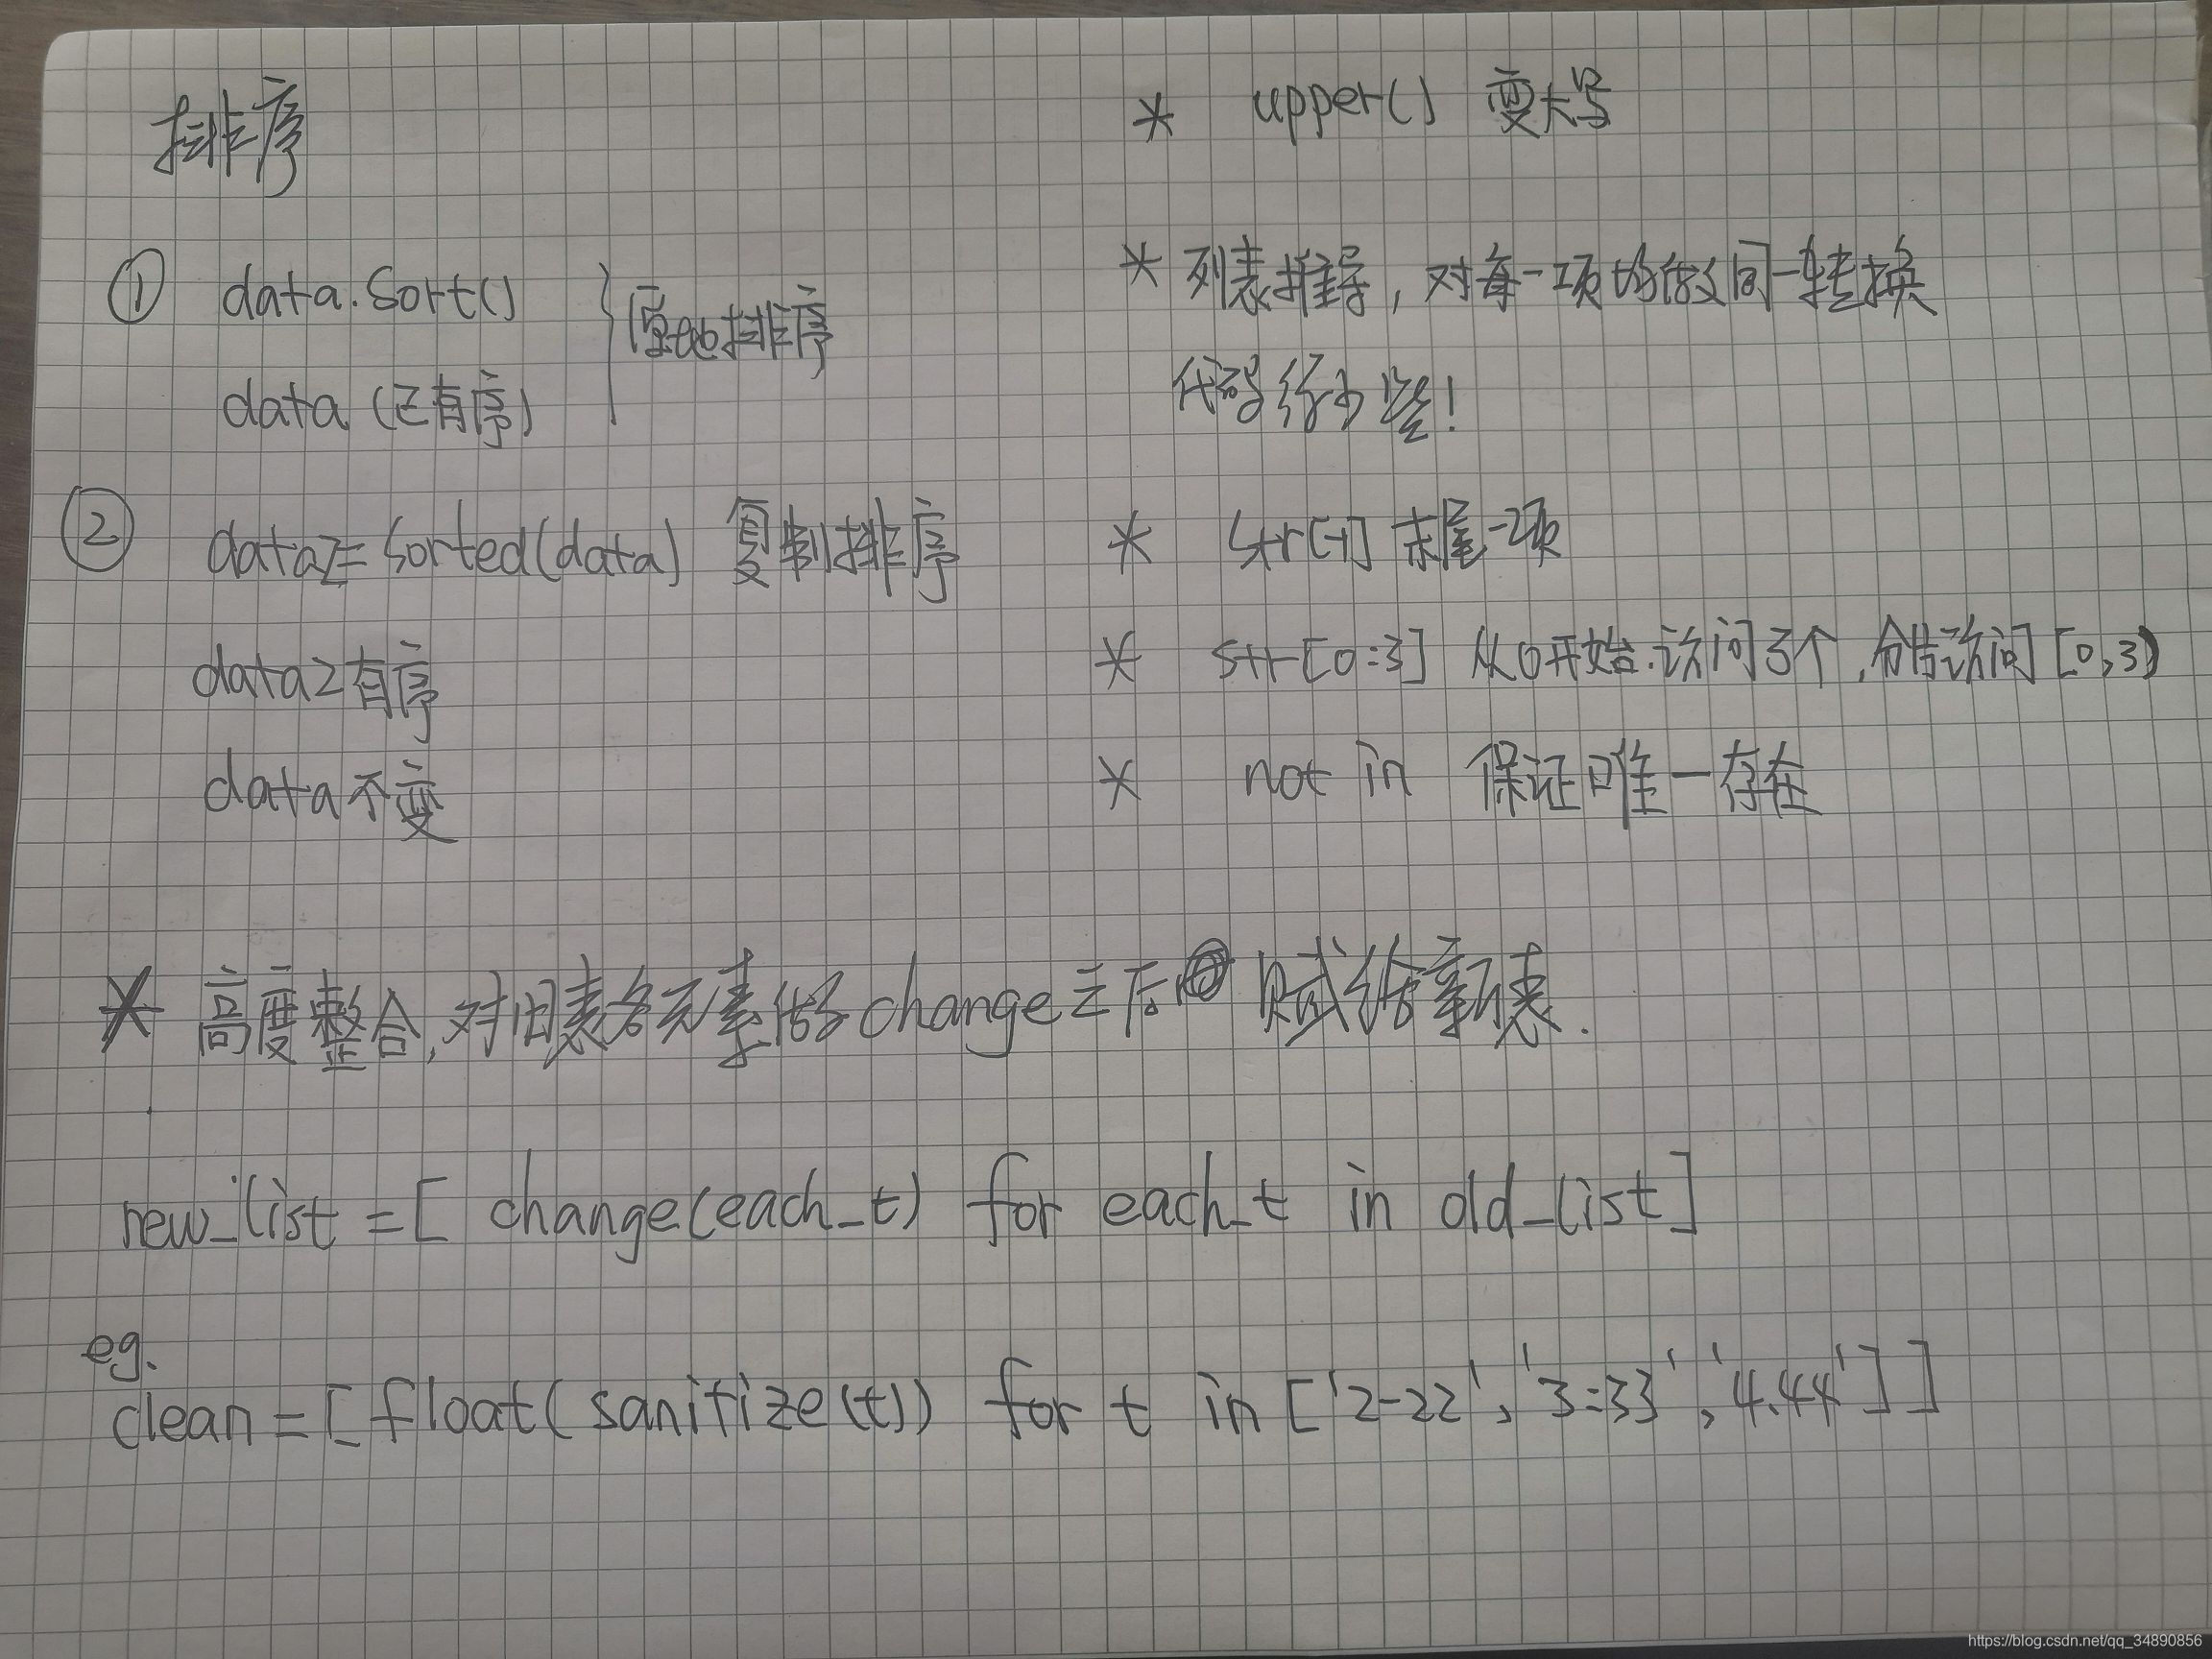 排序
① data.sort()
原地排序
data (已有序)
② data2=sorted(data) 复制排序
data2有序
data不变
* upper() 变大写
* 列表推导，对每一项均做同一转换
代码行少些!
* str[-1] 末尾一项
* str[0:3] 从0开始.访问3个,分片访问[0,3)
* not in 保证唯一存在
* 高度整合,对旧表各元素做 change之后 赋给新表.
new_list=[ change(each_t) for each_t in old_list]
eg.
clean=[float(sanitize(t)) for t in ['2-22','3:33','4.44']]
https://blog.csdn.net/qq_34890856